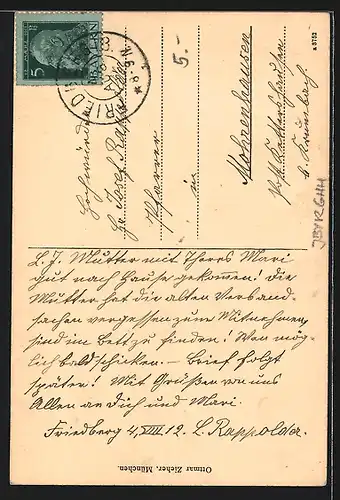 BAYERN
5
5
FRIEDB
8-9 N
5.-
Hochwürden
Hr. Josef Rappold
Pfarrer
in
Mohrenhausen
Post Kettershausen
b. Krumbach
A 5752
L. J. Mutter mit Theres Mari
gut nach Hause gekommen! Die
Mutter hat die alten Verband-
sachen vergessen zum Mitnehmen,
sind im Bett zu finden! Wenn mög-
lich bald schicken. — Brief folgt
später! Mit Grüßen von uns
Allen an Dich und Mari.
Friedberg 4.VIII.12. L. Rappolda.
Ottmar Zieher, München.